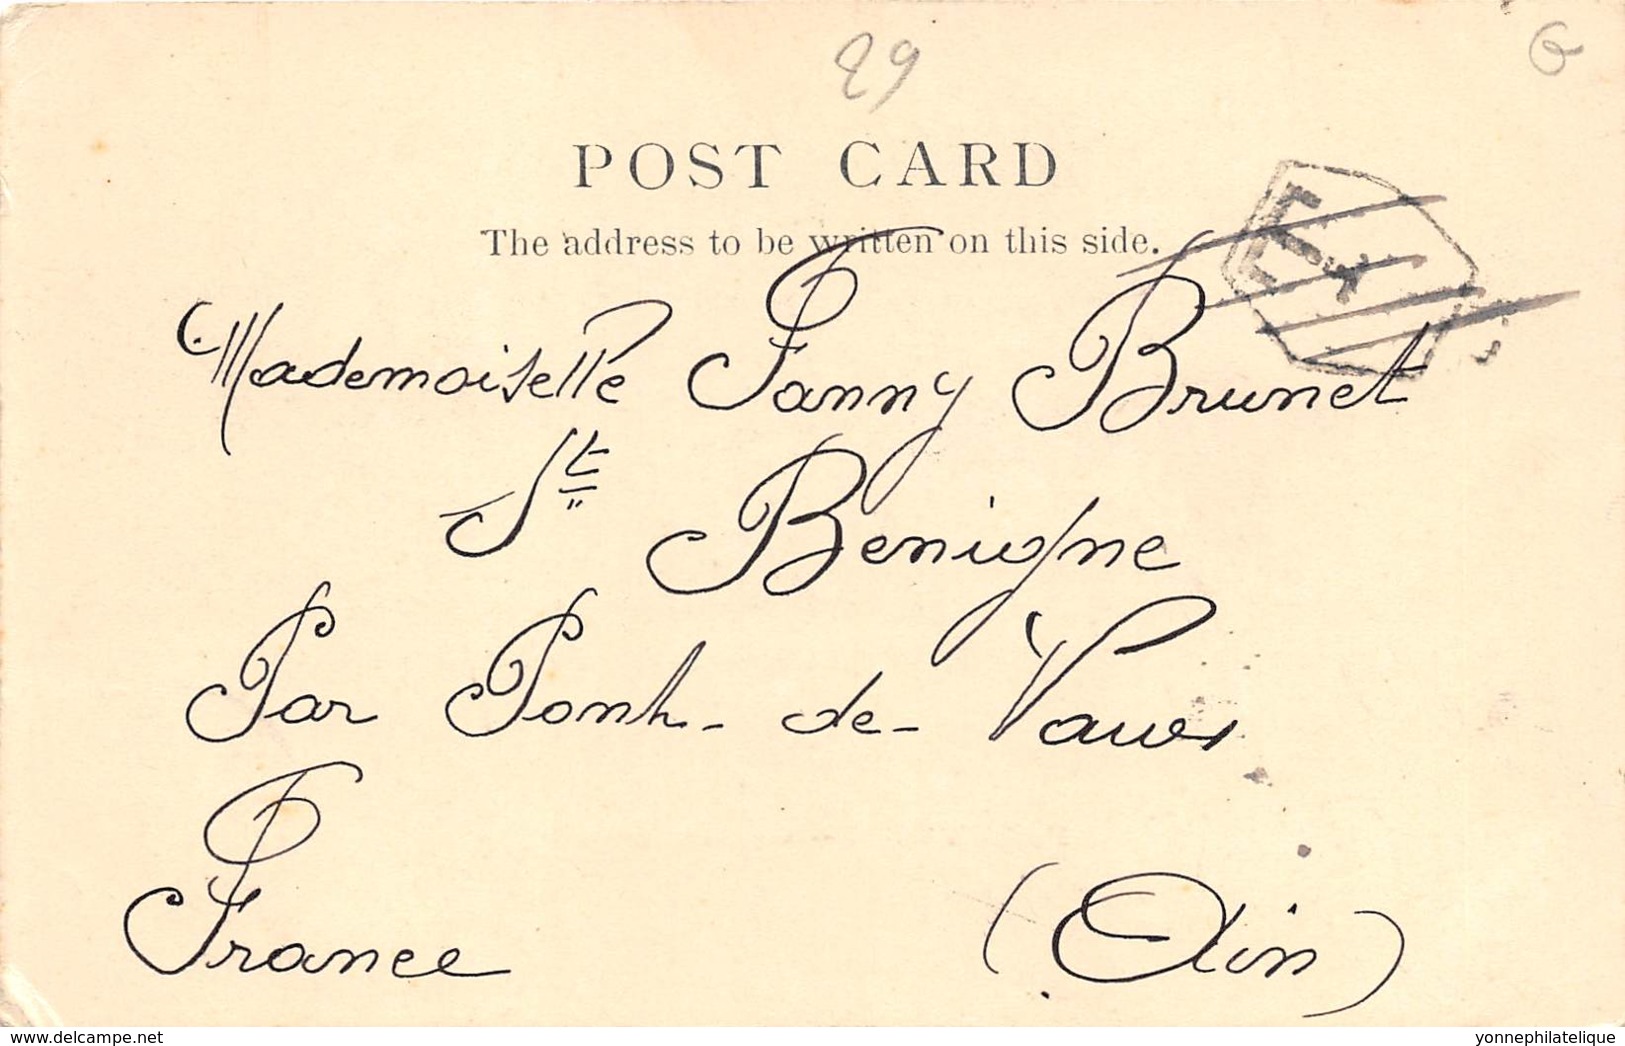 29
G
POST CARD
The address to be written on this side.
T
Mademoiselle Fanny Brunet
St Benigne
Par Pont-de-Vaux
France (Ain)
delcampe.net
yonnephilatelique